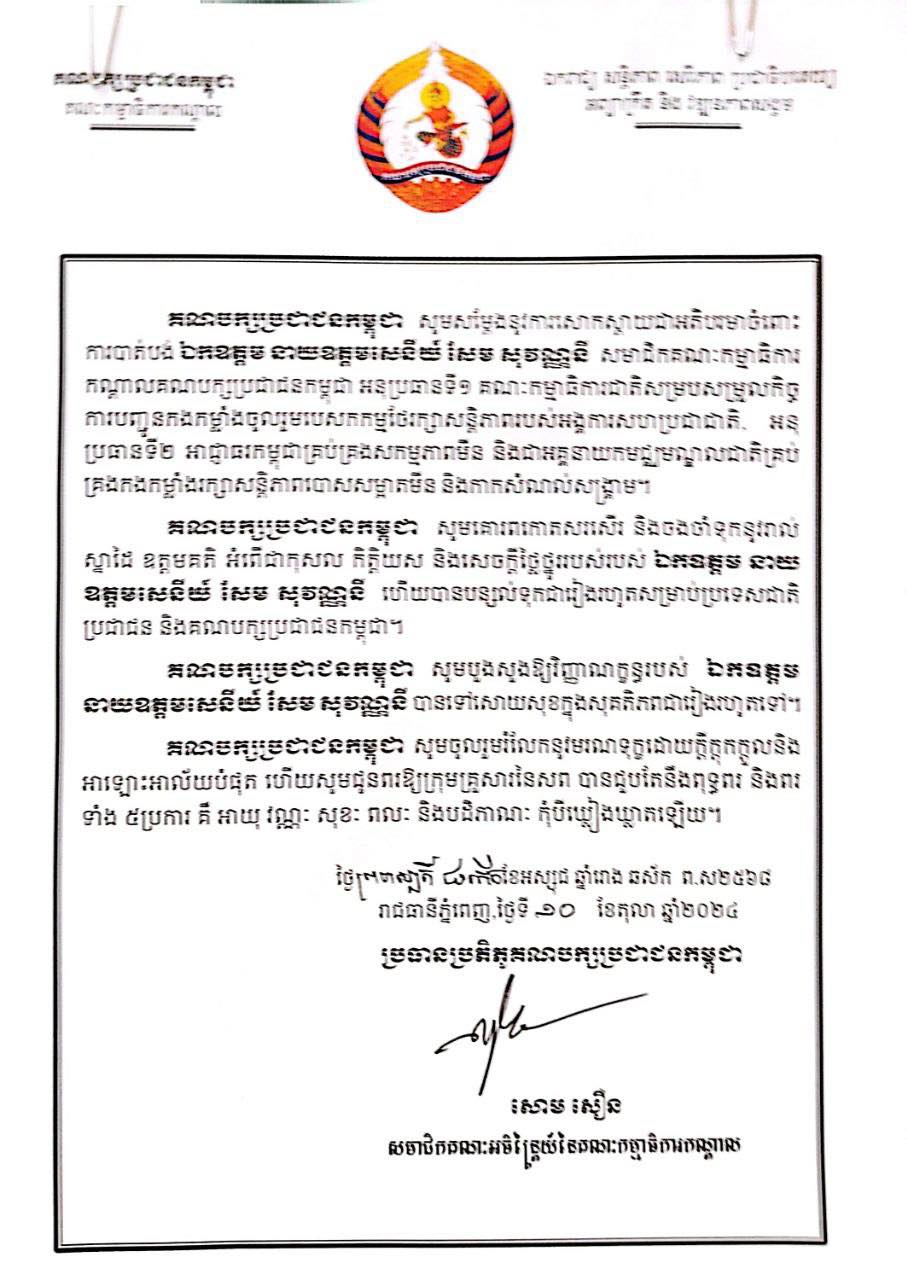 គណបក្សប្រជាជនកម្ពុជា
គណៈកម្មាធិការកណ្តាល
ឯករាជ្យ សន្តិភាព សេរីភាព ប្រជាធិបតេយ្យ
អព្យាក្រឹត និង វឌ្ឍនភាពសង្គម
គណបក្សប្រជាជនកម្ពុជា សូមសម្តែងនូវការសោកស្តាយជាអតិបរមាចំពោះ
ការបាត់បង់ ឯកឧត្តម នាយឧត្តមសេនីយ៍ សែម សុវណ្ណនី សមាជិកគណៈកម្មាធិការ
កណ្តាលគណបក្សប្រជាជនកម្ពុជា អនុប្រធានទី១ គណៈកម្មាធិការជាតិសម្របសម្រួលកិច្ច
ការបញ្ជូនកងកម្លាំងចូលរួមបេសកកម្មថែរក្សាសន្តិភាពរបស់អង្គការសហប្រជាជាតិ. អនុ
ប្រធានទី២ អាជ្ញាធរកម្ពុជាគ្រប់គ្រងសកម្មភាពមីន និងជាអគ្គនាយកមជ្ឈមណ្ឌលជាតិគ្រប់
គ្រងកងកម្លាំងរក្សាសន្តិភាពបោសសម្អាតមីន និងកាកសំណល់សង្គ្រាម។
គណបក្សប្រជាជនកម្ពុជា សូមគោរពកោតសរសើរ និងចងចាំទុកនូវរាល់
ស្នាដៃ ឧត្តមគតិ អំពើជាកុសល កិត្តិយស និងសេចក្តីថ្លៃថ្នូររបស់របស់ ឯកឧត្តម នាយ
ឧត្តមសេនីយ៍ សែម សុវណ្ណនី ហើយបានបន្សល់ទុកជារៀងរហូតសម្រាប់ប្រទេសជាតិ
ប្រជាជន និងគណបក្សប្រជាជនកម្ពុជា។
គណបក្សប្រជាជនកម្ពុជា សូមបួងសួងឱ្យវិញ្ញាណក្ខន្ធរបស់ ឯកឧត្តម
នាយឧត្តមសេនីយ៍ សែម សុវណ្ណនី បានទៅសោយសុខក្នុងសុគតិភពជារៀងរហូតទៅ។
គណបក្សប្រជាជនកម្ពុជា សូមចូលរួមរំលែកនូវមរណទុក្ខដោយក្តីក្តុកក្តួលនិង
អាឡោះអាល័យបំផុត ហើយសូមជូនពរឱ្យក្រុមគ្រួសារនៃសព បានជួបតែនឹងពុទ្ធពរ និងពរ
ទាំង ៥ប្រការ គឺ អាយុ វណ្ណៈ សុខៈ ពលៈ និងបដិភាណៈ កុំបីឃ្លៀងឃ្លាតឡើយ។
ថ្ងៃព្រហស្បតិ៍ ៨កើតខែអស្សុជ ឆ្នាំរោង ឆស័ក ព.ស២៥៦៨
រាជធានីភ្នំពេញ,ថ្ងៃទី ១០ ខែតុលា ឆ្នាំ២០២៤
ប្រធានប្រតិភូគណបក្សប្រជាជនកម្ពុជា
សោម សឿន
សមាជិកគណៈអចិន្ត្រៃយ៍នៃគណៈកម្មាធិការកណ្តាល